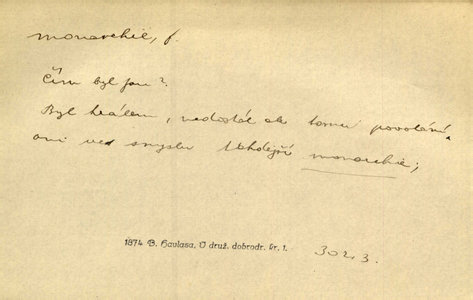 monarchie, f.
Čím byl Jan?
Byl králem, nedostál ale tomu povolání,
ani ve smyslu monarchie;
1874 B. Havlasa, V druž. dobrodr. kr. 1.
302,3.